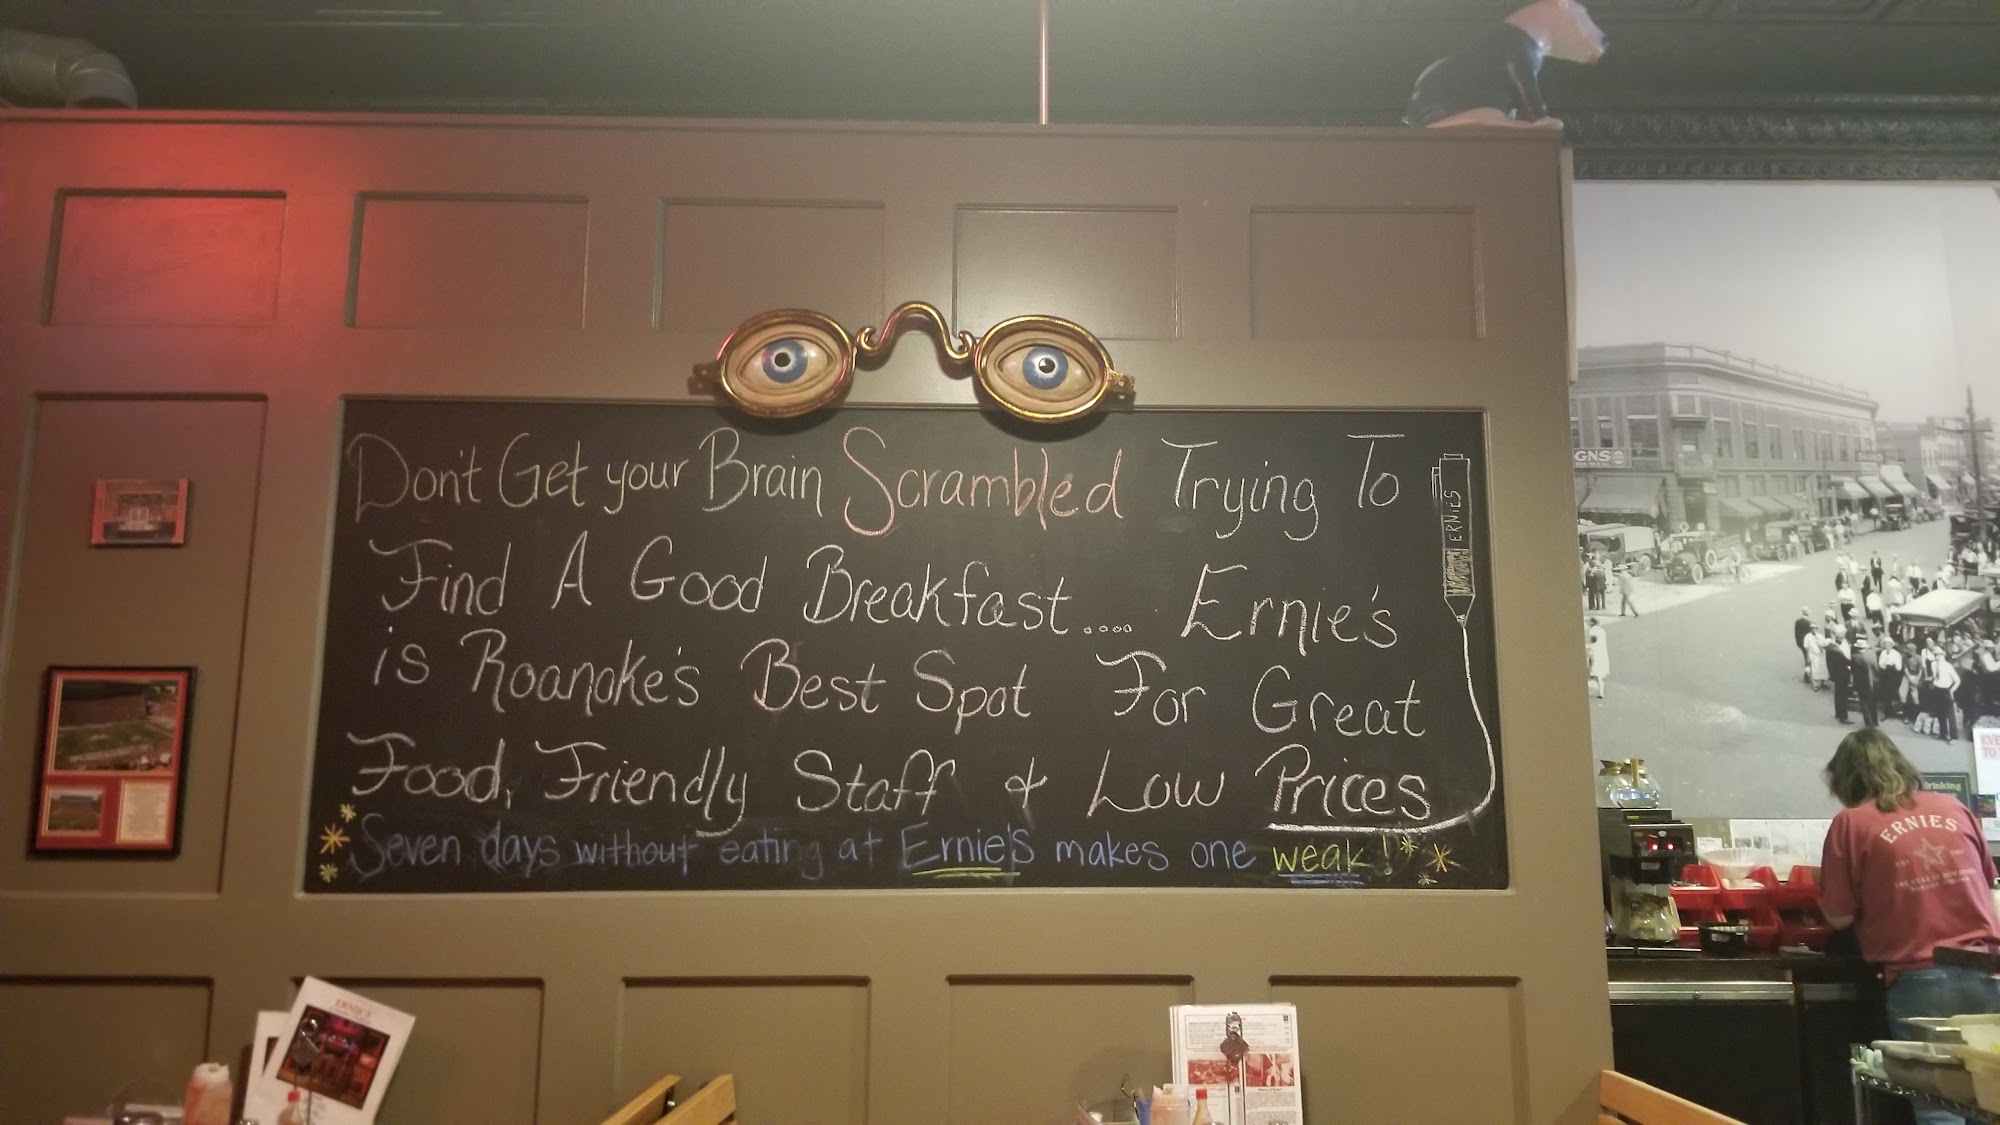 Don't Get your Brain Scrambled Trying To
Find A Good Breakfast.... Ernie's
is Roanoke's Best Spot For Great
Food, Friendly Staff & Low Prices
Seven days without eating at Ernie's makes one weak!
ERNIES
GNS
ERNIES
EST
ERNIE'S